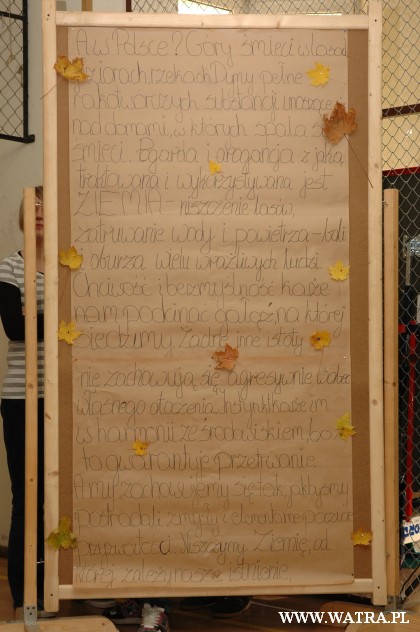 A w Polsce? Góry śmieci w lasach
jeziorach rzekach Dymy pełne
rakotwórczych substancji unoszące
nad domami, w których spala się
śmieci. Pogarda i arogancja z jaką
traktowana i wykorzystywana jest
ZIEMIA - niszczenie lasów,
zatruwanie wody i powietrza - boli
i oburza wielu wrażliwych ludzi.
Chciwość i bezmyślność każe
nam podcinać gałąź, na której
siedzimy. Żadne inne istoty
nie zachowują się agresywnie wobec
własnego otoczenia. Instynkt każe im
w harmonii ze środowiskiem, bo
to gwarantuje przetrwanie.
A my zachowujemy się tak, jakbyśmy
postradali zmysły i elementarne poczucie
przyzwoitości. Niszczymy Ziemię, od
której zależy nasze istnienie.
WWW.WATRA.PL